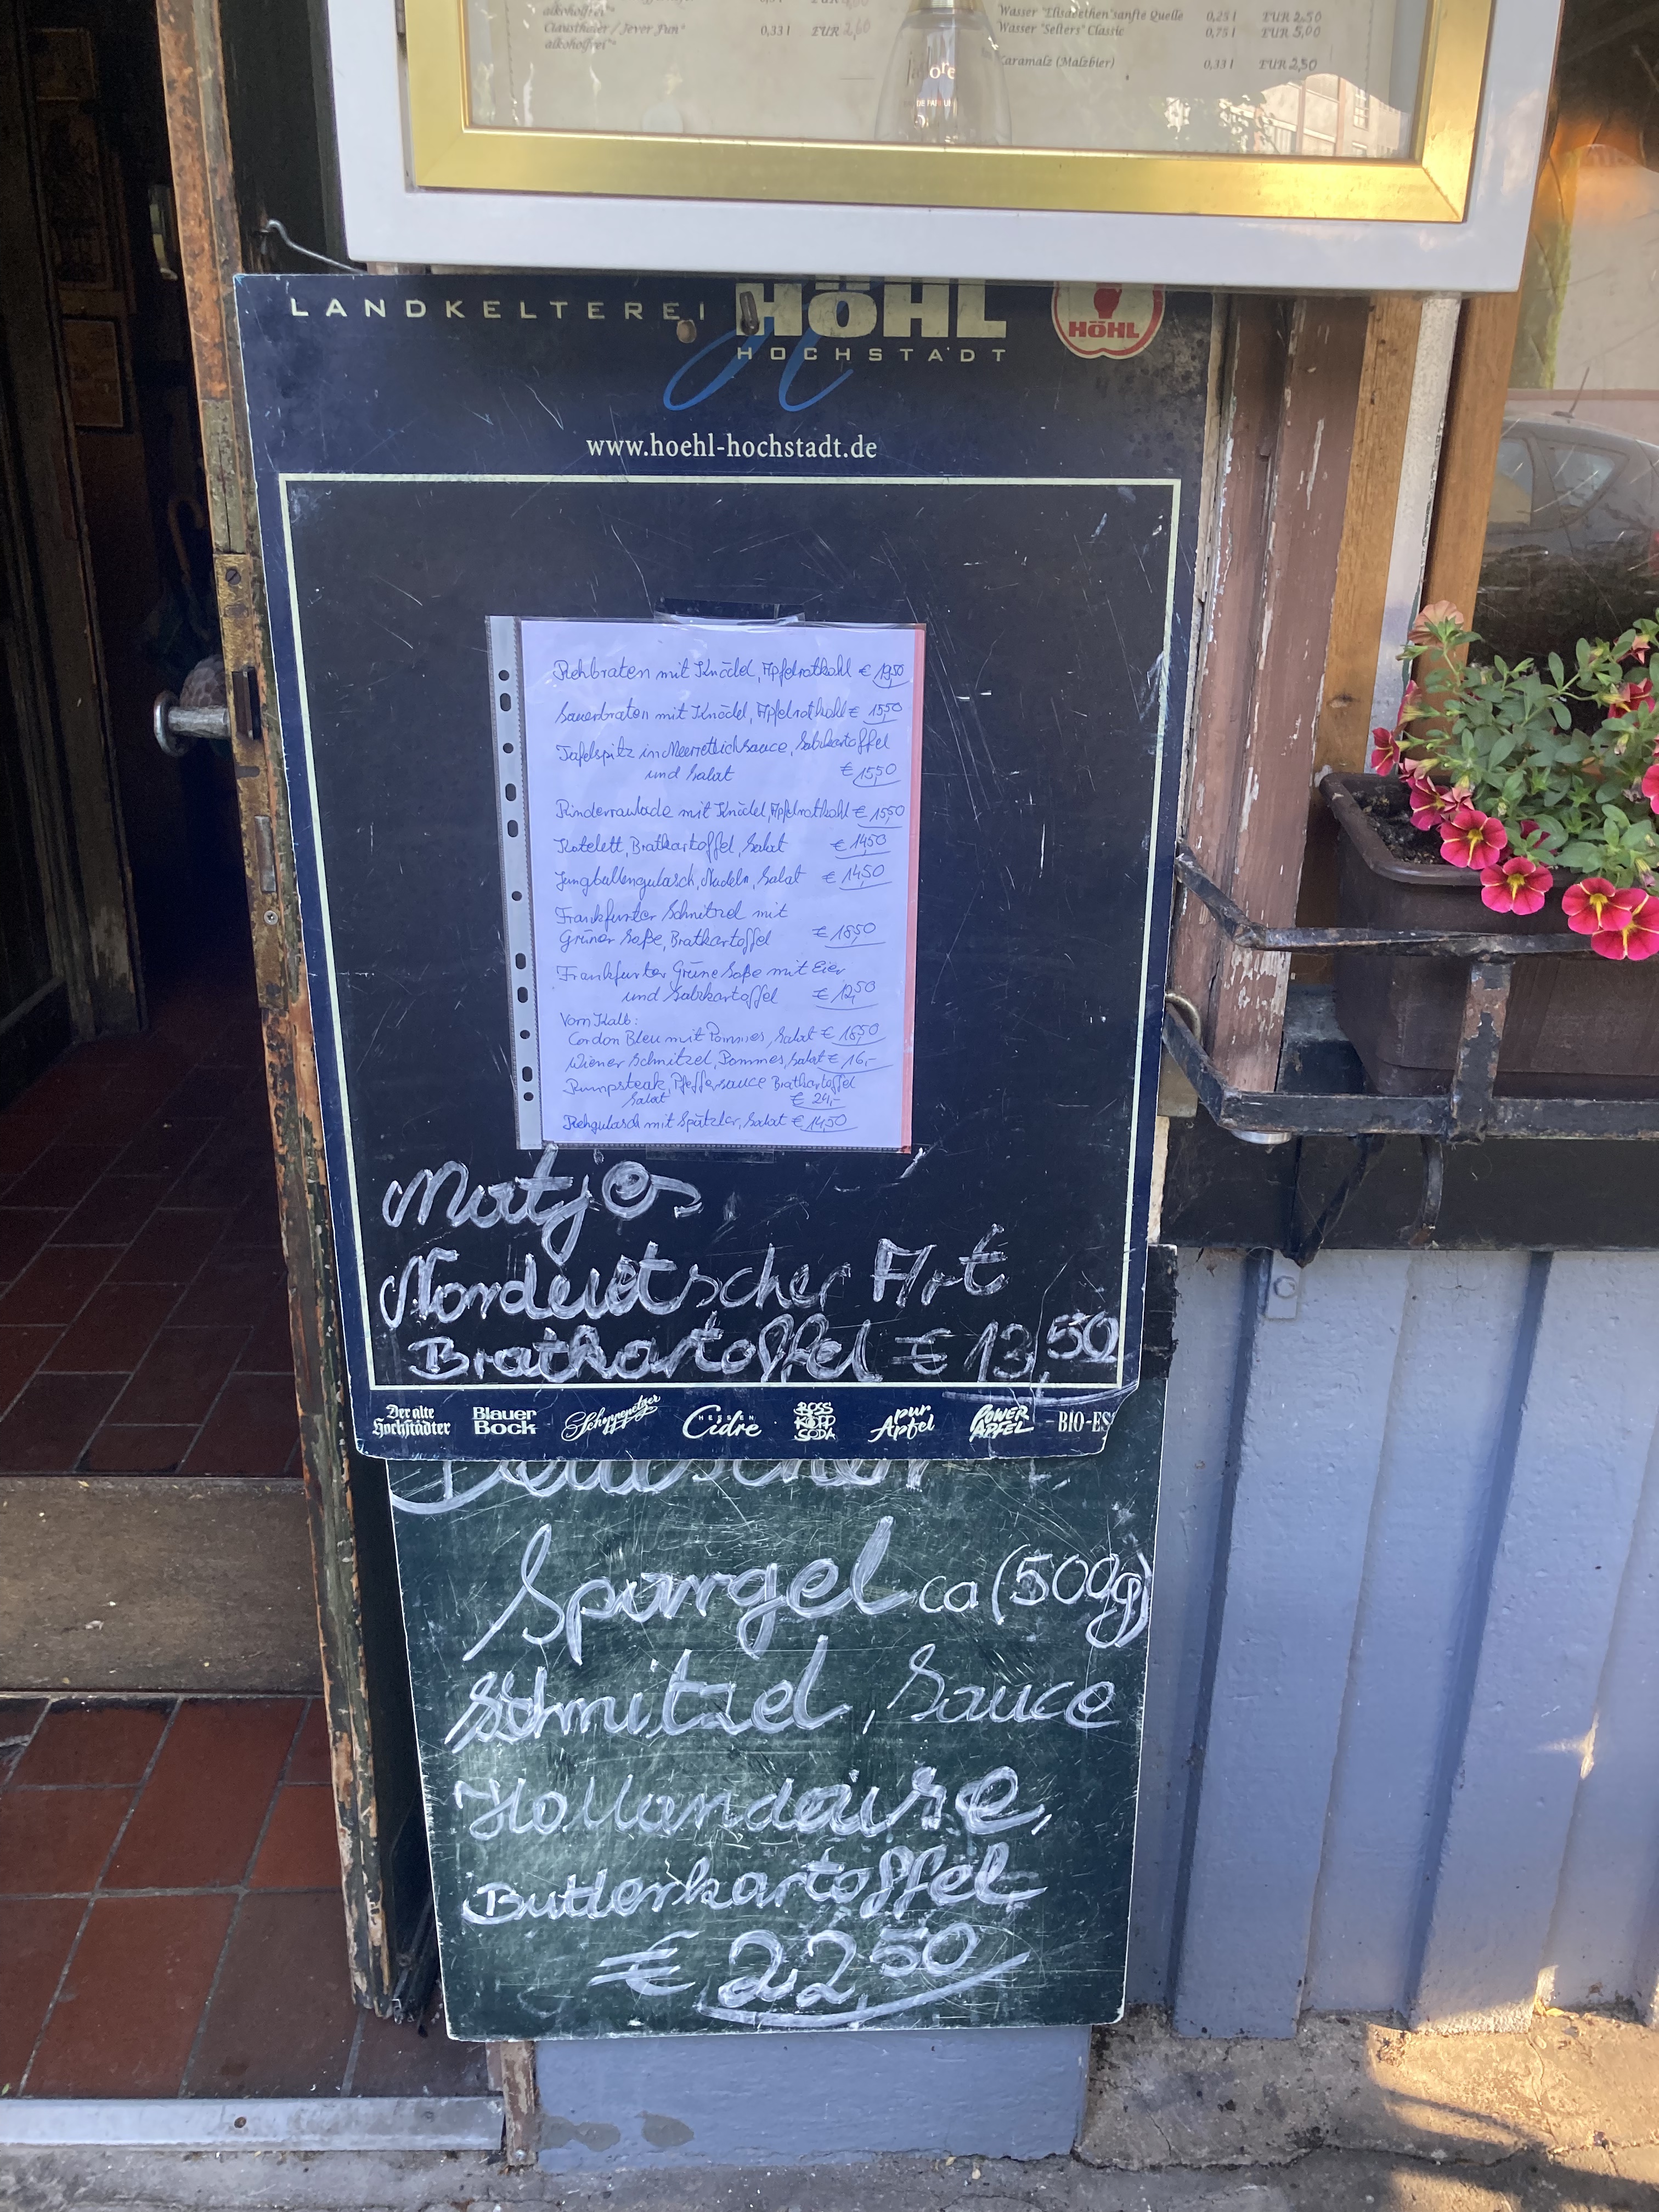 alkoholfrei**
Clausthaler / Jever Fun* 0,33 l EUR 2,60
alkoholfrei**
Wasser "Elisabethen" sanfte Quelle 0,25 l EUR 2,50
Wasser "Selters" Classic 0,75 l EUR 5,00
Karamalz (Malzbier) 0,33 l EUR 2,50
LANDKELTEREI HÖHL
HOCHSTADT
HÖHL
www.hoehl-hochstadt.de
Rehbraten mit Knödel, Apfelrotkohl € 19,50
Sauerbraten mit Knödel, Apfelrotkohl € 15,50
Tafelspitz in Meerrettichsauce, Salzkartoffel
und Salat € 15,50
Rinderroulade mit Knödel, Apfelrotkohl € 15,50
Kotelett, Bratkartoffel, Salat € 14,50
Jungbullengulasch, Nudeln, Salat € 14,50
Frankfurter Schnitzel mit
Grüner Soße, Bratkartoffel € 18,50
Frankfurter Grüne Soße mit Eier
und Salzkartoffel € 12,50
Vom Kalb:
Cordon Bleu mit Pommes, Salat € 18,50
Wiener Schnitzel, Pommes, Salat € 16,-
Rumpsteak, Pfeffersauce Bratkartoffel
Salat € 24,-
Rehgulasch mit Spätzle, Salat € 14,50
Matjes
Nordeutscher Art
Bratkartoffel € 13,50
Der alte Hochstädter
Blauer Bock
Schoppepetzer
HESSEN Cidre
ROSS KOPP SODA
pur Apfel
POWER APFEL
BIO-ES
Deutscher
Spargel ca (500g)
Schnitzel, Sauce
Hollandaise,
Butterkartoffel
€ 22,50